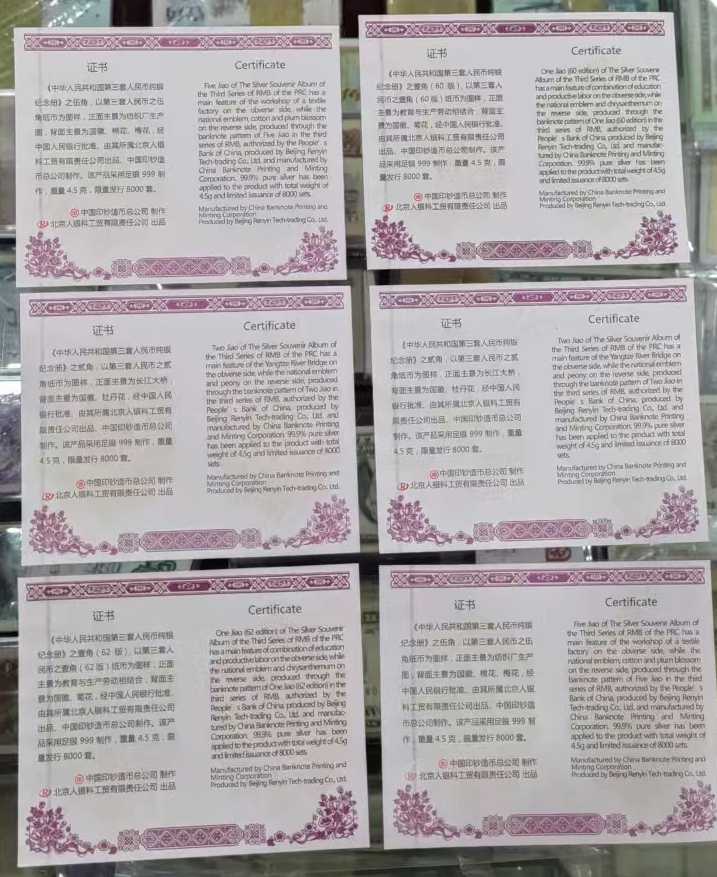 证书
《中华人民共和国第三套人民币纯银
纪念册》之伍角，以第三套人民币之伍
角纸币为图样，正面主景为纺织厂生产
图，背面主景为国徽、棉花、梅花，经
中国人民银行批准、由其所属北京人银
科工贸有限责任公司出品、中国印钞造
币总公司制作。该产品采用足银 999 制
作，重量 4.5 克，限量发行 8000 套。
中国印钞造币总公司 制作
北京人银科工贸有限责任公司 出品
Certificate
Five Jiao of The Silver Souvenir Album of
the Third Series of RMB of the PRC has a
main feature of the workshop of a textile
factory on the obverse side, while the
national emblem, cotton and plum blossom
on the reverse side, produced through the
banknote pattern of Five Jiao in the third
series of RMB, authorized by the People' s
Bank of China, produced by Beijing Renyin
Tech-trading Co., Ltd, and manufactured by
China Banknote Printing and Minting
Corporation. 99.9% pure silver has been
applied to the product with total weight of
4.5g and limited issuance of 8000 sets.
Manufactured by China Banknote Printing and
Minting Corporation
Produced by Beijing Renyin Tech-trading Co., Ltd.
证书
《中华人民共和国第三套人民币纯银
纪念册》之壹角（60 版），以第三套人
民币之壹角（60 版）纸币为图样，正面
主景为教育与生产劳动相结合，背面主
景为国徽、菊花，经中国人民银行批准、
由其所属北京人银科工贸有限责任公司
出品、中国印钞造币总公司制作。该产
品采用足银 999 制作，重量 4.5 克，限
量发行 8000 套。
中国印钞造币总公司 制作
北京人银科工贸有限责任公司 出品
Certificate
One Jiao (60 edition) of The Silver Souvenir
Album of the Third Series of RMB of the PRC
has a main feature of combination of education
and productive labor on the obverse side, while
the national emblem and chrysanthemum on
the reverse side, produced through the
banknote pattern of One Jiao (60 edition) in the
third series of RMB, authorized by the People'
s Bank of China, produced by Beijing Renyin
Tech-trading Co., Ltd, and manufac-
tured by China Banknote Printing and Minting
Corporation. 99.9% pure silver has been
applied to the product with total weight of 4.5g
and limited issuance of 8000 sets.
Manufactured by China Banknote Printing and
Minting Corporation
Produced by Beijing Renyin Tech-trading Co., Ltd.
证书
《中华人民共和国第三套人民币纯银
纪念册》之贰角，以第三套人民币之贰
角纸币为图样，正面主景为长江大桥，
背面主景为国徽、牡丹花，经中国人民
银行批准、由其所属北京人银科工贸有
限责任公司出品、中国印钞造币总公司
制作。该产品采用足银 999 制作，重量
4.5 克，限量发行 8000 套。
中国印钞造币总公司 制作
北京人银科工贸有限责任公司 出品
Certificate
Two Jiao of The Silver Souvenir Album of
the Third Series of RMB of the PRC has a
main feature of the Yangtze River Bridge on
the obverse side, while the national emblem
and peony on the reverse side, produced
through the banknote pattern of Two Jiao in
the third series of RMB, authorized by the
People' s Bank of China, produced by
Beijing Renyin Tech-trading Co., Ltd, and
manufactured by China Banknote Printing
and Minting Corporation. 99.9% pure silver
has been applied to the product with total
weight of 4.5g and limited issuance of 8000
sets.
Manufactured by China Banknote Printing and
Minting Corporation
Produced by Beijing Renyin Tech-trading Co., Ltd.
证书
《中华人民共和国第三套人民币纯银
纪念册》之贰角，以第三套人民币之贰
角纸币为图样，正面主景为长江大桥，
背面主景为国徽、牡丹花，经中国人民
银行批准、由其所属北京人银科工贸有
限责任公司出品、中国印钞造币总公司
制作。该产品采用足银 999 制作，重量
4.5 克，限量发行 8000 套。
中国印钞造币总公司 制作
北京人银科工贸有限责任公司 出品
Certificate
Two Jiao of The Silver Souvenir Album of
the Third Series of RMB of the PRC has a
main feature of the Yangtze River Bridge on
the obverse side, while the national emblem
and peony on the reverse side, produced
through the banknote pattern of Two Jiao in
the third series of RMB, authorized by the
People' s Bank of China, produced by
Beijing Renyin Tech-trading Co., Ltd, and
manufactured by China Banknote Printing
and Minting Corporation. 99.9% pure silver
has been applied to the product with total
weight of 4.5g and limited issuance of 8000
sets.
Manufactured by China Banknote Printing and
Minting Corporation
Produced by Beijing Renyin Tech-trading Co., Ltd.
证书
《中华人民共和国第三套人民币纯银
纪念册》之壹角（62 版），以第三套人
民币之壹角（62 版）纸币为图样，正面
主景为教育与生产劳动相结合，背面主
景为国徽、菊花，经中国人民银行批准、
由其所属北京人银科工贸有限责任公司
出品、中国印钞造币总公司制作。该产
品采用足银 999 制作，重量 4.5 克，限
量发行 8000 套。
中国印钞造币总公司 制作
北京人银科工贸有限责任公司 出品
Certificate
One Jiao (62 edition) of The Silver Souvenir
Album of the Third Series of RMB of the PRC
has a main feature of combination of education
and productive labor on the obverse side, while
the national emblem and chrysanthemum on
the reverse side, produced through the
banknote pattern of One Jiao (62 edition) in the
third series of RMB, authorized by the
People' s Bank of China, produced by Beijing
Renyin Tech-trading Co., Ltd, and manufac-
tured by China Banknote Printing and Minting
Corporation. 99.9% pure silver has been
applied to the product with total weight of 4.5g
and limited issuance of 8000 sets.
Manufactured by China Banknote Printing and
Minting Corporation
Produced by Beijing Renyin Tech-trading Co., Ltd.
证书
《中华人民共和国第三套人民币纯银
纪念册》之伍角，以第三套人民币之伍
角纸币为图样，正面主景为纺织厂生产
图，背面主景为国徽、棉花、梅花，经
中国人民银行批准、由其所属北京人银
科工贸有限责任公司出品、中国印钞造
币总公司制作。该产品采用足银 999 制
作，重量 4.5 克，限量发行 8000 套。
中国印钞造币总公司 制作
北京人银科工贸有限责任公司 出品
Certificate
Five Jiao of The Silver Souvenir Album of
the Third Series of RMB of the PRC has a
main feature of the workshop of a textile
factory on the obverse side, while the
national emblem, cotton and plum blossom
on the reverse side, produced through the
banknote pattern of Five Jiao in the third
series of RMB, authorized by the People' s
Bank of China, produced by Beijing Renyin
Tech-trading Co., Ltd, and manufactured by
China Banknote Printing and Minting
Corporation. 99.9% pure silver has been
applied to the product with total weight of
4.5g and limited issuance of 8000 sets.
Manufactured by China Banknote Printing and
Minting Corporation
Produced by Beijing Renyin Tech-trading Co., Ltd.